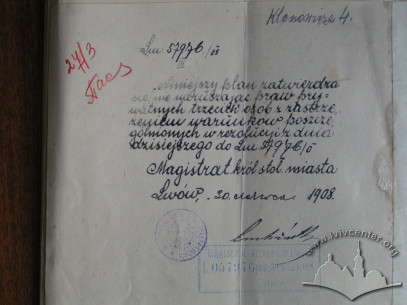 Klonowicza 4.
24/3
Lm 57976/II
III
Niniejszy plan zatwierdza
się, nie naruszając praw pry-
watnych trzecich osób z zastrze-
żeniem warunków poszcze-
gólnionych w rezolucyi z dnia
dzisiejszego do Lm 57976/II
Magistrat król. stoł. miasta
Lwów, 20 czerwca 1908.
057976
www.lvivcenter.org